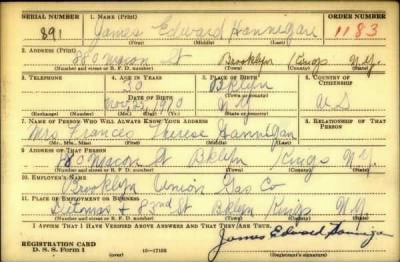 SERIAL NUMBER 1. NAME (Print) ORDER NUMBER
891 James Edward Hannigan 1183
(First) (Middle) (Last)
2. ADDRESS (Print)
280 Macon St Brooklyn Kings N.Y.
(Number and street or R. F. D. number) (Town) (County) (State)
3. TELEPHONE 4. AGE IN YEARS 5. PLACE OF BIRTH 6. COUNTRY OF CITIZENSHIP
30 Bklyn
DATE OF BIRTH (Town or county)
Nov 2, 1910 N.Y. U S
(Exchange) (Number) (Mo.) (Day) (Yr.) (State or country)
7. NAME OF PERSON WHO WILL ALWAYS KNOW YOUR ADDRESS 8. RELATIONSHIP OF THAT PERSON
Mrs. Frances Therese Hannigan
(Mr., Mrs., Miss) (First) (Middle) (Last)
9. ADDRESS OF THAT PERSON
280 Macon St Bklyn Kings N.Y.
(Number and street or R. F. D. number) (Town) (County) (State)
10. EMPLOYER'S NAME
Brooklyn Union Gas Co
11. PLACE OF EMPLOYMENT OR BUSINESS
+ 83rd St Bklyn Kings N.Y.
(Number and street or R. F. D. number) (Town) (County) (State)
I AFFIRM THAT I HAVE VERIFIED ABOVE ANSWERS AND THAT THEY ARE TRUE.
REGISTRATION CARD
D. S. S. Form 1 16—17105 James Edward Hannigan
(Registrant's signature)